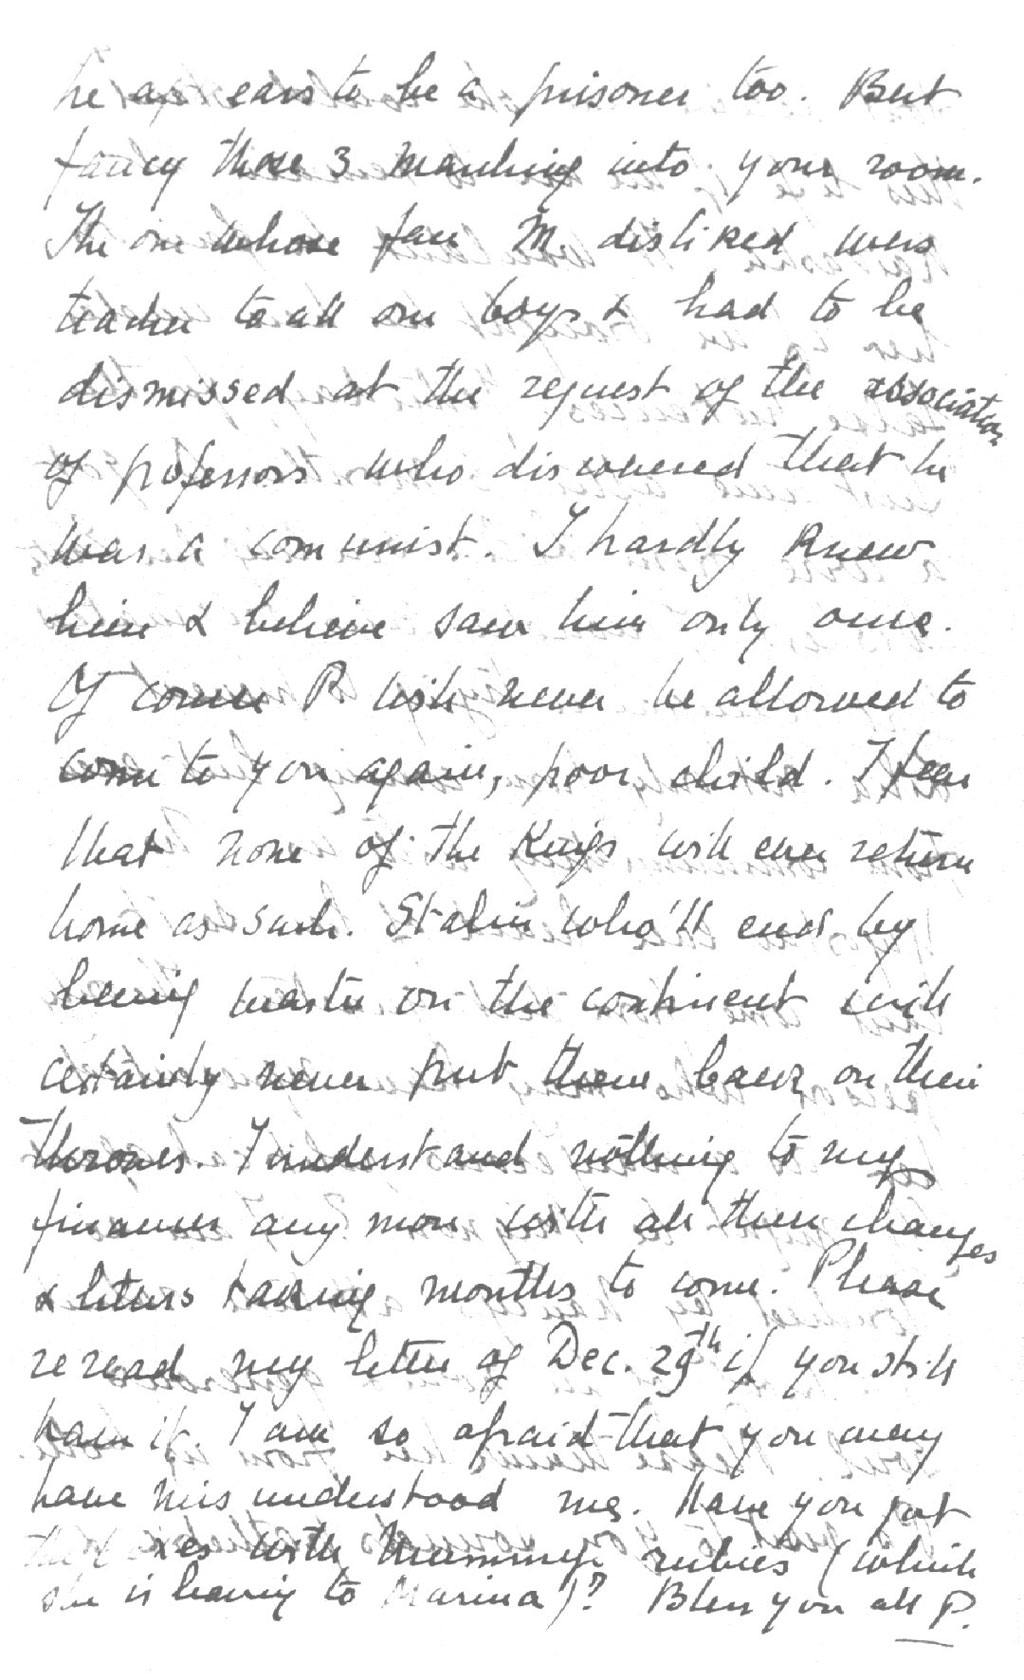 he appears to be a prisoner too. But
fancy those 3 marching into your room.
The one whose face M. disliked was
teacher to all our boys & had to be
dismissed at the request of the association
of professors who discovered that he
was a communist. I hardly knew
him & believe saw him only once.
Of course P. will never be allowed to
come to you again, poor child. I fear
that none of the Kings will ever return
home as such. Stalin who'll end by
being master on the continent will
certainly never put them back on their
thrones. I understand nothing to my
finances any more with all these changes
& letters taking months to come. Please
reread my letter of Dec. 29th if you still
have it. I am so afraid that you may
have misunderstood me. Have you got
the boxes with Mummy's rubies (which
she is leaving to Marina)? Bless you all P.